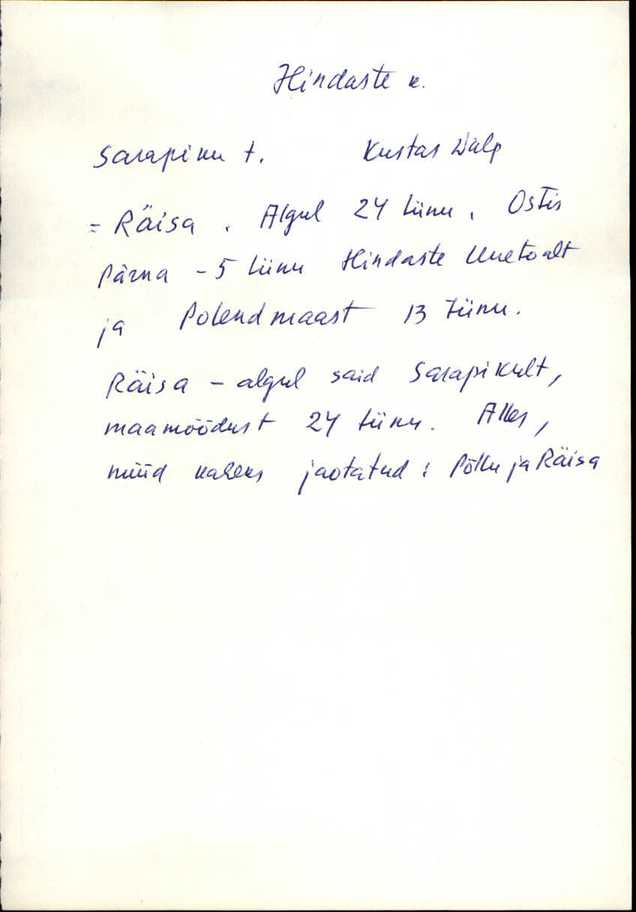 Hindaste k.
Sarapiku t. Kustas Walp
= Räisa. Algul 24 tiinu. Ostis
Pärna - 5 tiinu Hindaste Unetoalt
ja Polendmaast 13 tiinu.
Räisa - algul said Sarapikult,
maamöödust 24 tiinu. Alles,
nüüd kaheks jaotatud: Põllu ja Räisa